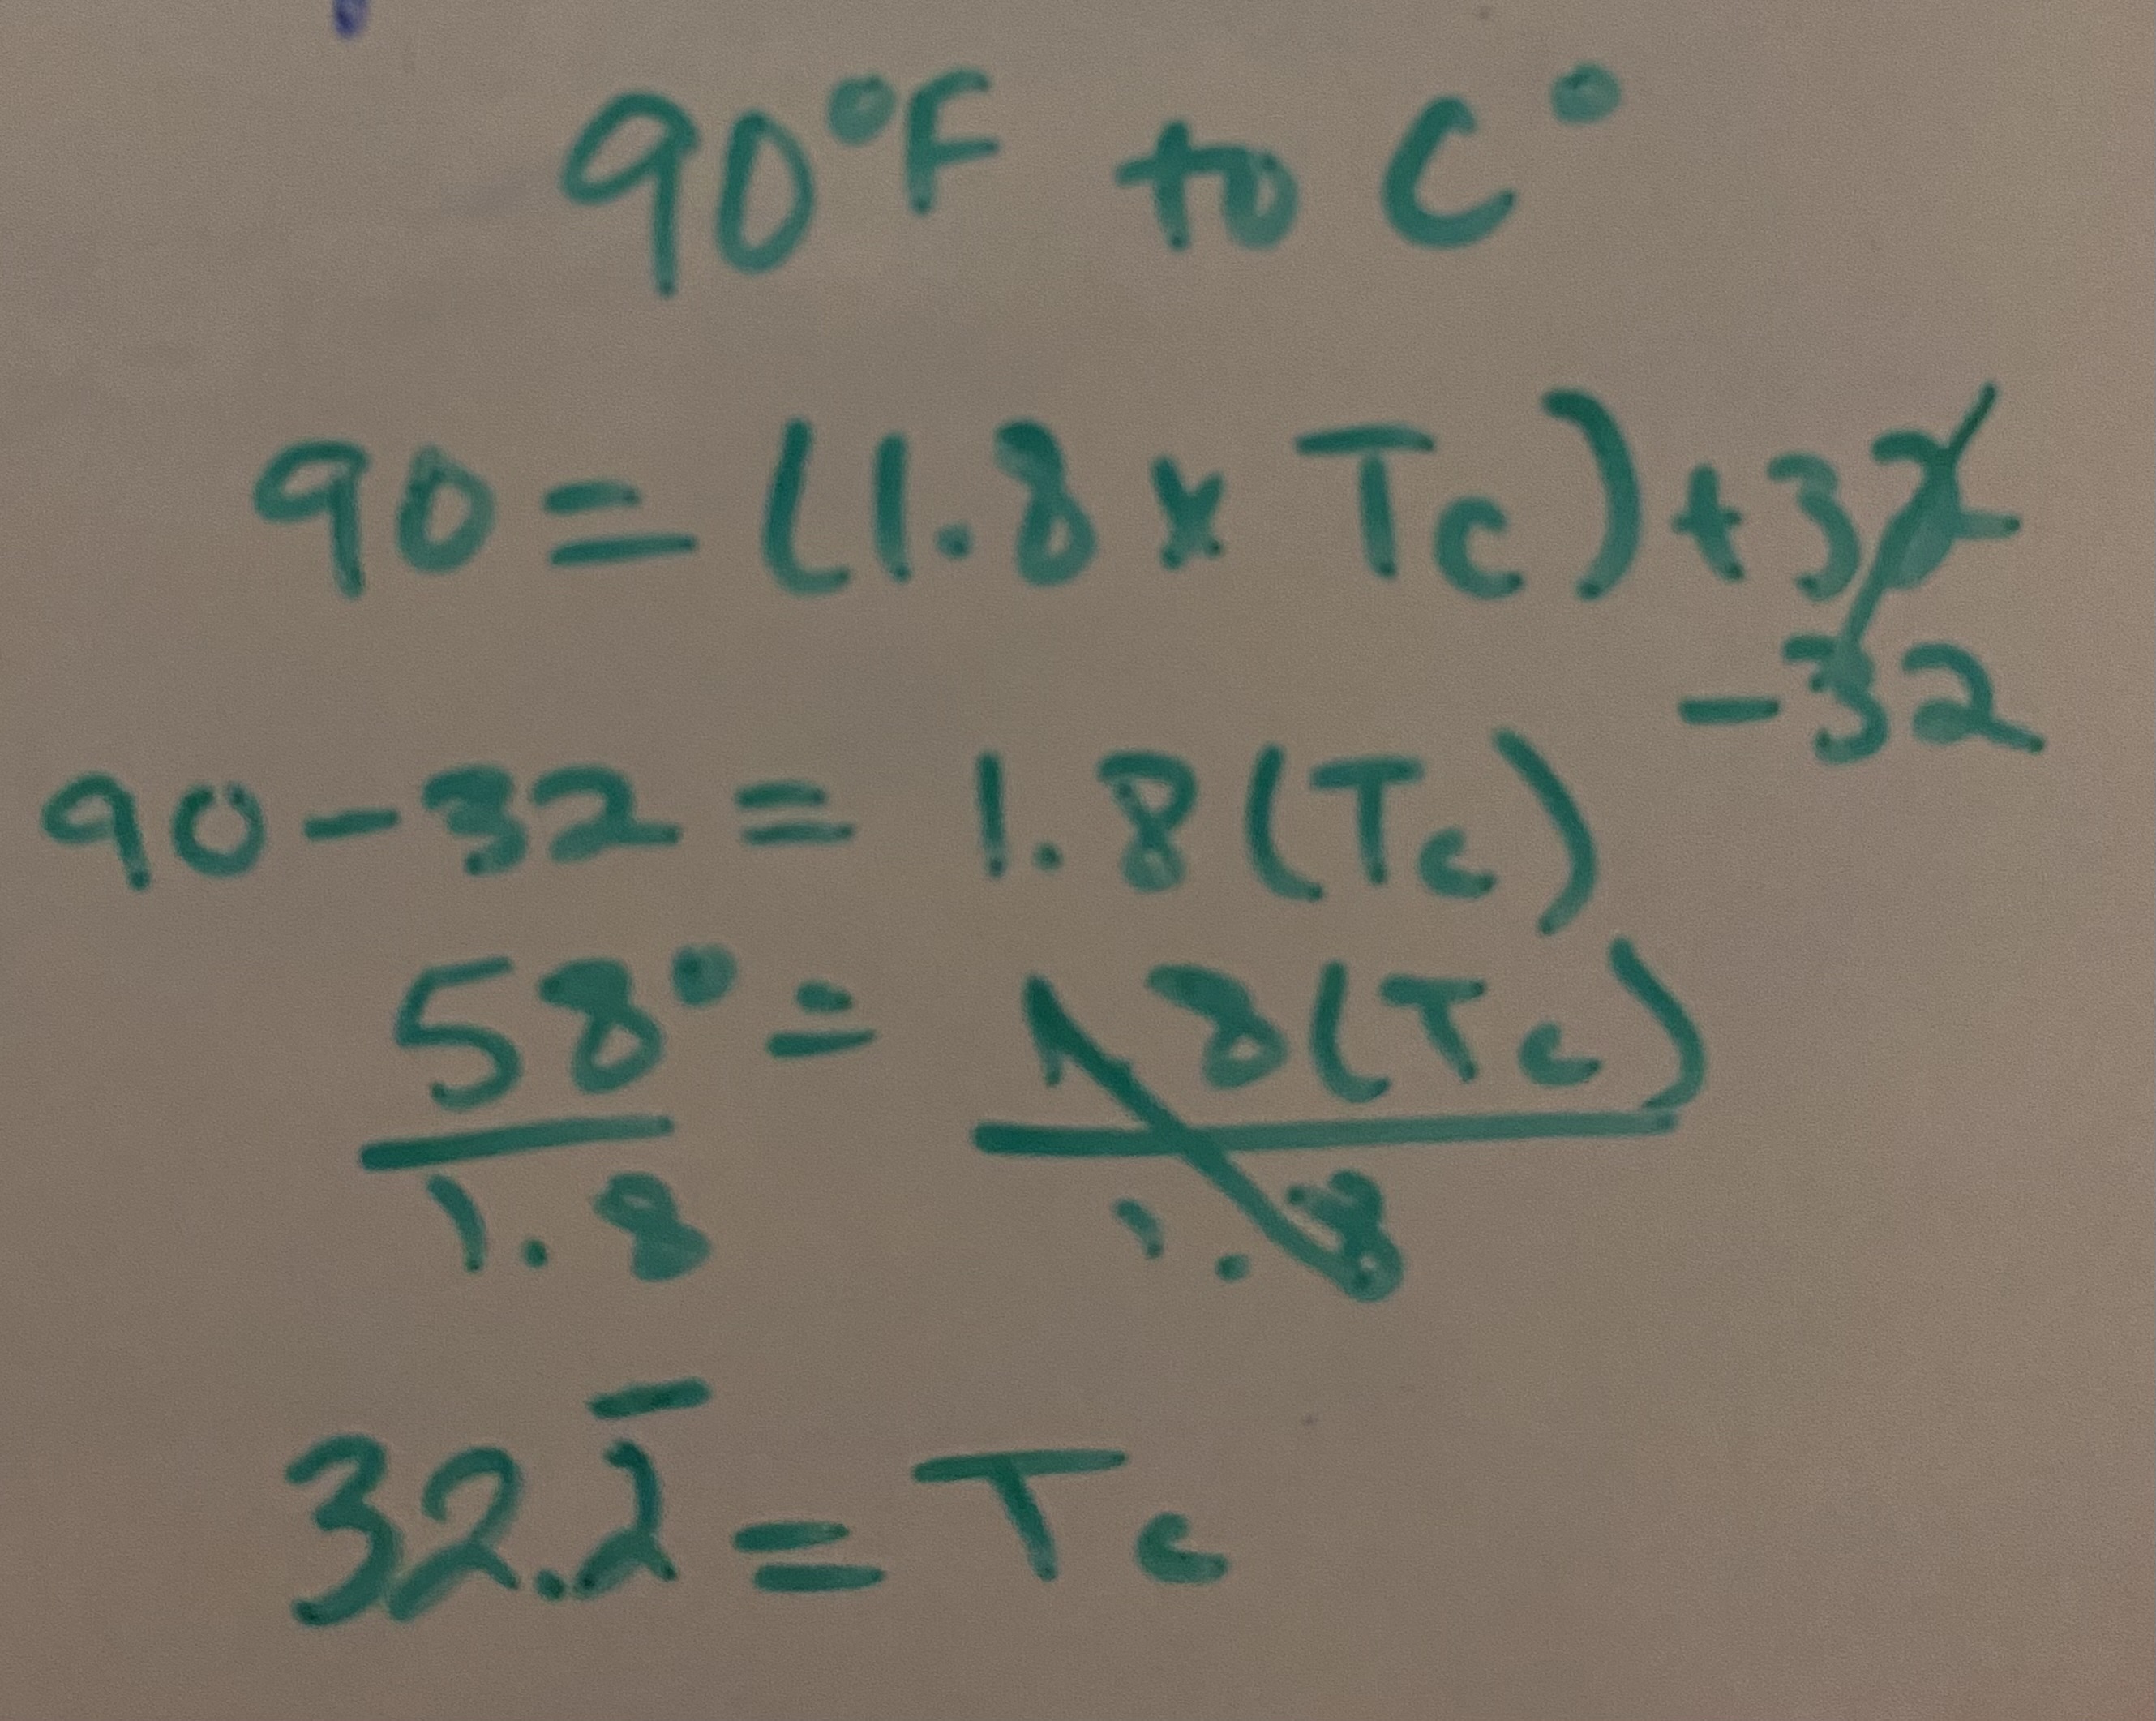 90°F to C°
90 = (1.8 x Tc) + 32
- 32
90 - 32 = 1.8 (Tc)
58° = 1.8 (Tc)
1.8 1.8
32.2̅ = Tc